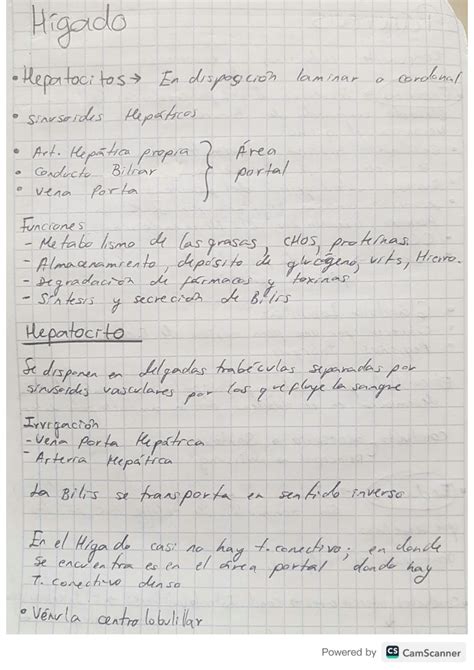 Hígado
• Hepatocitos → En disposición laminar o cordonal
• sinusoides Hepáticos
• Art. Hepática propia } Área
• Conducto Biliar
• vena Porta
portal
Funciones
- Metabolismo de las grasas, CHOS, proteínas.
- Almacenamiento, depósito de glucógeno, vits, Hierro.
- Degradación de fármacos y toxinas
- Síntesis y secreción de Bilis
Hepatocito
Se disponen en delgadas trabéculas separadas por
sinusoides vasculares por las que fluye la sangre
Irrigación
- Vena Porta Hepática
- Arteria Hepática
La Bilis se transporta en sentido inverso
En el Hígado casi no hay t. conectivo; en donde
se encuentra es en el área portal donde hay
T. conectivo denso
• Vénula centrolobulillar
Powered by CS CamScanner